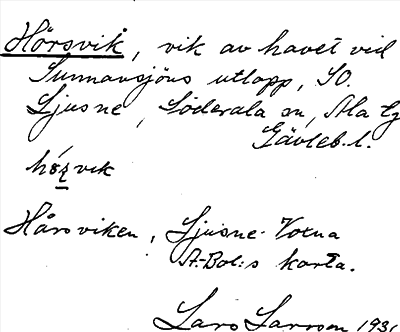 Hårsvik, vik av havet vid
Sunnansjöns utlopp, SO.
Ljusne, Söderala sn, Ala
Gävleb. l.
Hårsviken, Ljusne-Voxna
A.-Bol:s karta.
Lars Larsson